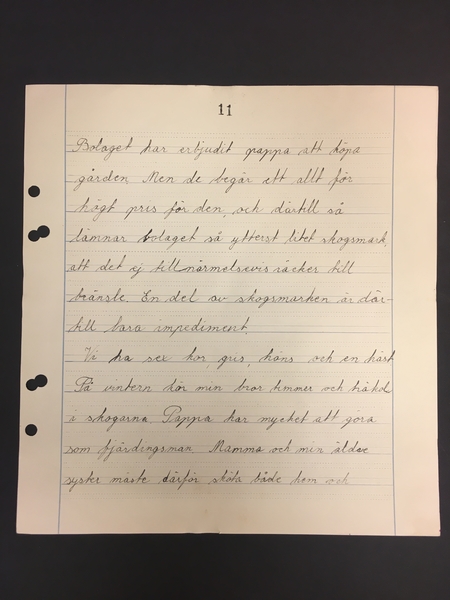 11
Bolaget har erbjudit pappa att köpa
gården. Men de begär ett allt för
högt pris för den, och därtill så
lämnar bolaget så ytterst litet skogsmark,
att det ej tillnärmelsevis räcker till
bränsle. En del av skogsmarken är där-
till bara impediment.
Vi ha sex kor, gris, höns och en häst
På vintern kör min bror timmer och träkol
i skogarna. Pappa har mycket att göra
som fjärdingsman. Mamma och min äldre
syster måste därför sköta både hem och